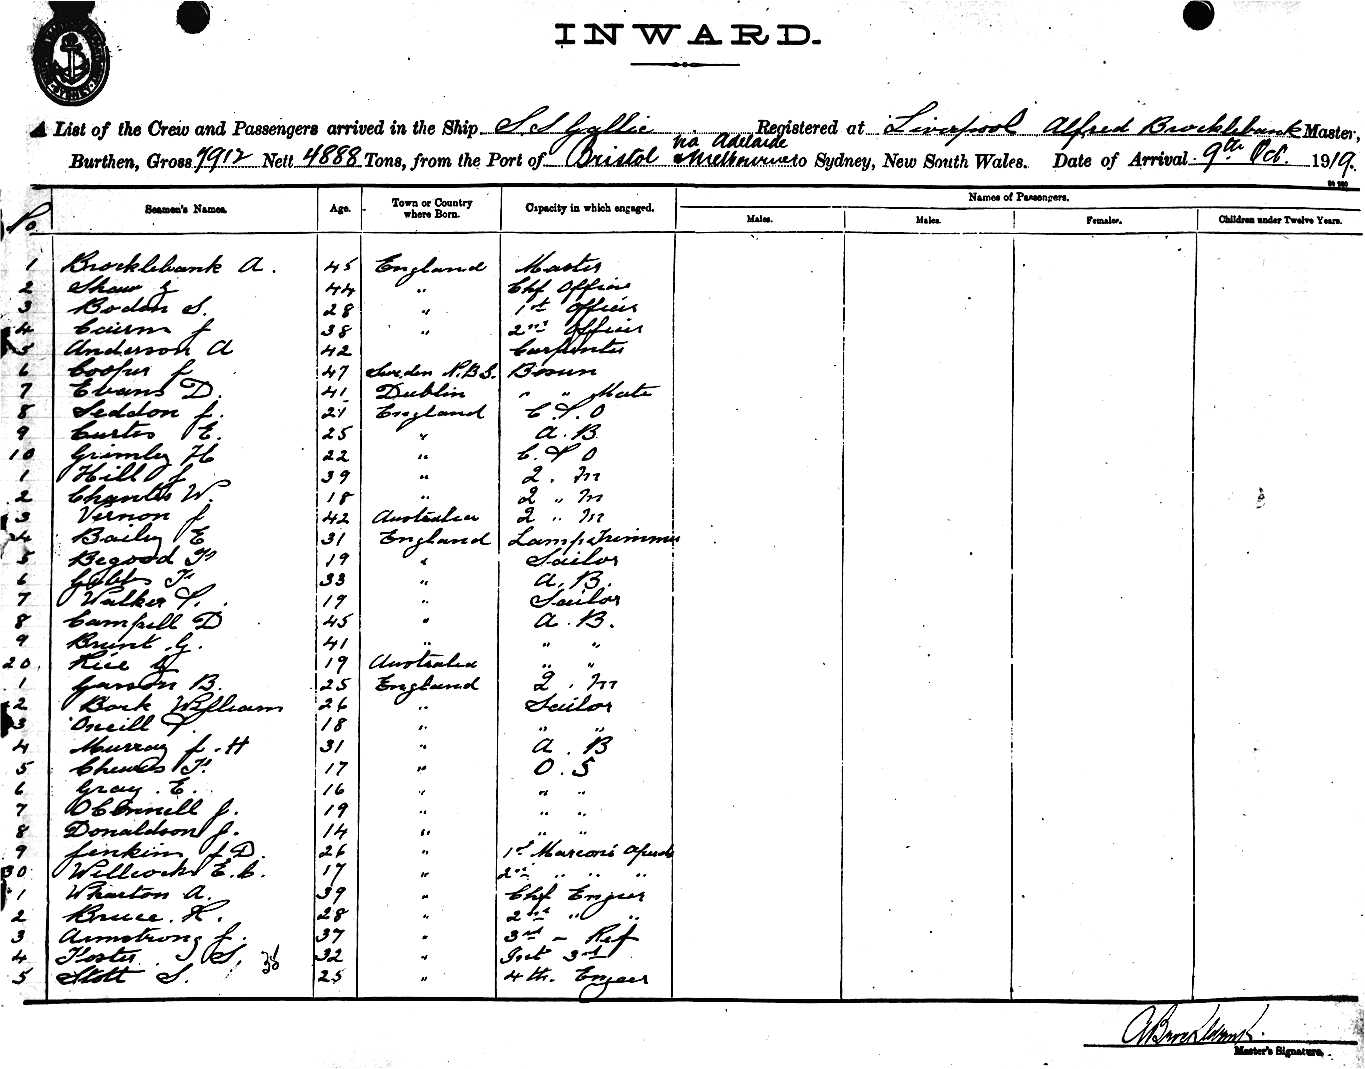 INWARD.
SYDNEY
List of the Crew and Passengers arrived in the Ship S.S Gyllic Registered at Liverpool Alfred Brocklebank Master,
via Adelaide
Burthen, Gross 7912 Nett 4888 Tons, from the Port of Bristol & Melbourne to Sydney, New South Wales. Date of Arrival 9th Oct. 1919.
No Seamen's Names. Age. Town or Country where Born. Capacity in which engaged. Names of Passengers.
Males. Males. Females. Children under Twelve Years.
1 Brocklebank A. 45 England Master
2 Shaw J 44 " Chf Officer
3 Boden S. 28 " 1st Officer
4 Cairns J 38 " 2nd Officer
5 Anderson A 42 Carpenter
6 Cooper J 47 Sweden N.B.S. Bosun
7 Evans D. 41 Dublin " " Mate
8 Seddon J. 21 England C.S.O
9 Curtis E. 25 " A.B.
10 Grimley H 22 " C.S.O
1 Hill J 39 " 2. M
2 W. 18 " 2 " M
3 Vernon J 42 Australia 2 " M
4 Bailey E 31 England Lamp Trimmer
5 Begood F 19 " Sailor
6 Gibbs F 33 " A.B.
7 Walker S. 19 " Sailor
8 Campell D 45 " A.B.
9 Brunt G. 41 " " "
20 Rice G 19 Australia " "
1 Garson B. 25 England 2. M
2 Bark William 26 " Sailor
3 Oneill T. 18 " " "
4 Murray J.H 31 " A.B
5 F. 17 " O.S
6 Gray E. 16 " " "
7 OConnell J. 19 " " "
8 Donaldson J. 14 " " "
9 Jenkins J D. 26 " 1st Marconi
30 Willcocks E.C. 17 " 2nd " " "
1 Wharton A. 39 " Chf Engeer
2 Bruce R. 28 " 2nd " "
3 Armstrong J. 37 " 3rd - Ref
4 Foster S. 32 " Int 3rd
5 Stott S. 25 " 4th. Engeer
A Brocklebank.
Master's Signature.